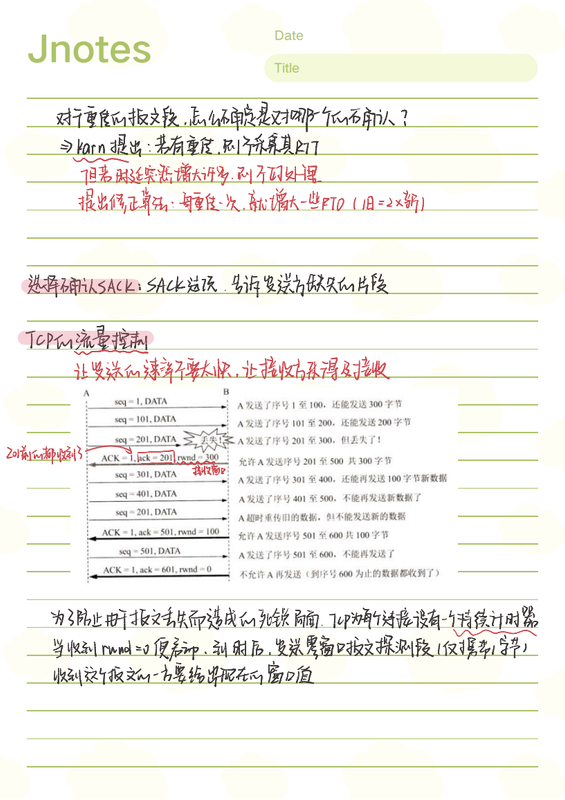 Jnotes
Date
Title
对于重传的报文段，怎么确定是对哪一个的确认？
⇒ Karn 提出：若有重传，则不采用其RTT
但若时延突然增大许多，则不可处理
提出修正算法：每重传一次，就增大一些RTO（旧=2×新）
选择确认SACK：SACK选项，告诉发送方缺失的片段
TCP的流量控制
让发送的速率不要太快，让接收方来得及接收
A B
seq = 1, DATA A 发送了序号 1 至 100，还能发送 300 字节
seq = 101, DATA A 发送了序号 101 至 200，还能发送 200 字节
seq = 201, DATA 丢失! A 发送了序号 201 至 300，但丢失了！
201前的都收到了 ACK = 1, ack = 201, rwnd = 300 允许 A 发送序号 201 至 500 共 300 字节
接收窗口
seq = 301, DATA A 发送了序号 301 至 400，还能再发送 100 字节新数据
seq = 401, DATA A 发送了序号 401 至 500，不能再发送新数据了
seq = 201, DATA A 超时重传旧的数据，但不能发送新的数据
ACK = 1, ack = 501, rwnd = 100 允许 A 发送序号 501 至 600 共 100 字节
seq = 501, DATA A 发送了序号 501 至 600，不能再发送了
ACK = 1, ack = 601, rwnd = 0 不允许 A 再发送（到序号 600 为止的数据都收到了）
为了防止由于报文丢失而造成的死锁局面，TCP为每个连接设有一个持续计时器
当收到 rwnd=0 便启动，到时后，发送零窗口报文探测段（仅携带1字节）
收到这个报文的一方要给出现在的窗口值